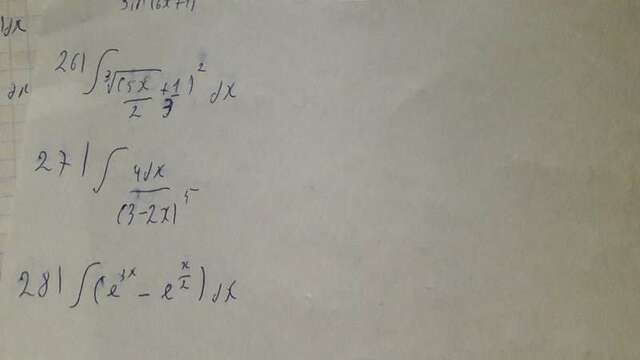 26) ∫ ∛(5x/2 + 1/3)² dx
27) ∫ 4dx/(3-2x)⁵
28) ∫ (e³ˣ - e^(x/2)) dx